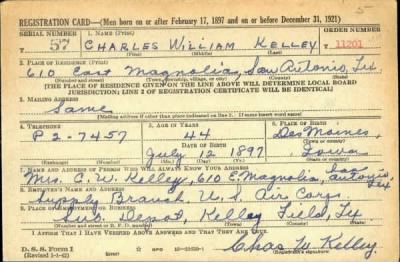 5
REGISTRATION CARD—(Men born on or after February 17, 1897 and on or before December 31, 1921)
SERIAL NUMBER 1. NAME (Print) ORDER NUMBER
T 57 CHARLES WILLIAM KELLEY T 11201
(First) (Middle) (Last)
2. PLACE OF RESIDENCE (Print)
610 East Magnolia, San Antonio, Tex
(Number and street) (Town, township, village, or city) (County) (State)
[THE PLACE OF RESIDENCE GIVEN ON THE LINE ABOVE WILL DETERMINE LOCAL BOARD
JURISDICTION; LINE 2 OF REGISTRATION CERTIFICATE WILL BE IDENTICAL]
3. MAILING ADDRESS
Same
[Mailing address if other than place indicated on line 2. If same insert word same]
4. TELEPHONE 5. AGE IN YEARS 6. PLACE OF BIRTH
P 2-7457 44 Des Moines
DATE OF BIRTH (Town or county)
July 12 1897 Iowa
(Exchange) (Number) (Mo.) (Day) (Yr.) (State or country)
7. NAME AND ADDRESS OF PERSON WHO WILL ALWAYS KNOW YOUR ADDRESS
Mrs. C. W. Kelley, 610 E. Magnolia, San Antonio, Tex
8. EMPLOYER'S NAME AND ADDRESS
Supply Branch U. S. Air Corps
9. PLACE OF EMPLOYMENT OR BUSINESS
Sub. Depot, Kelley Field, Tex.
(Number and street or R. F. D. number) (Town) (County) (State)
I AFFIRM THAT I HAVE VERIFIED ABOVE ANSWERS AND THAT THEY ARE TRUE.
D. S. S. Form 1
(Revised 1-1-42) (over) GPO Chas W. Kelley